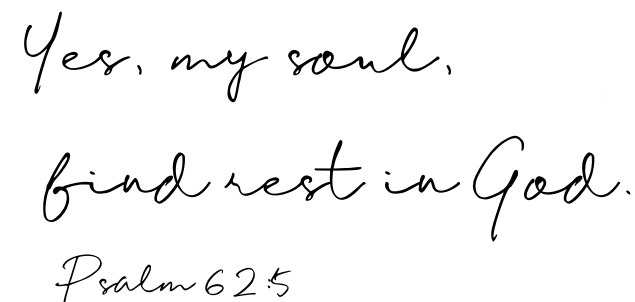 Yes, my soul,
find rest in God.
Psalm 62:5